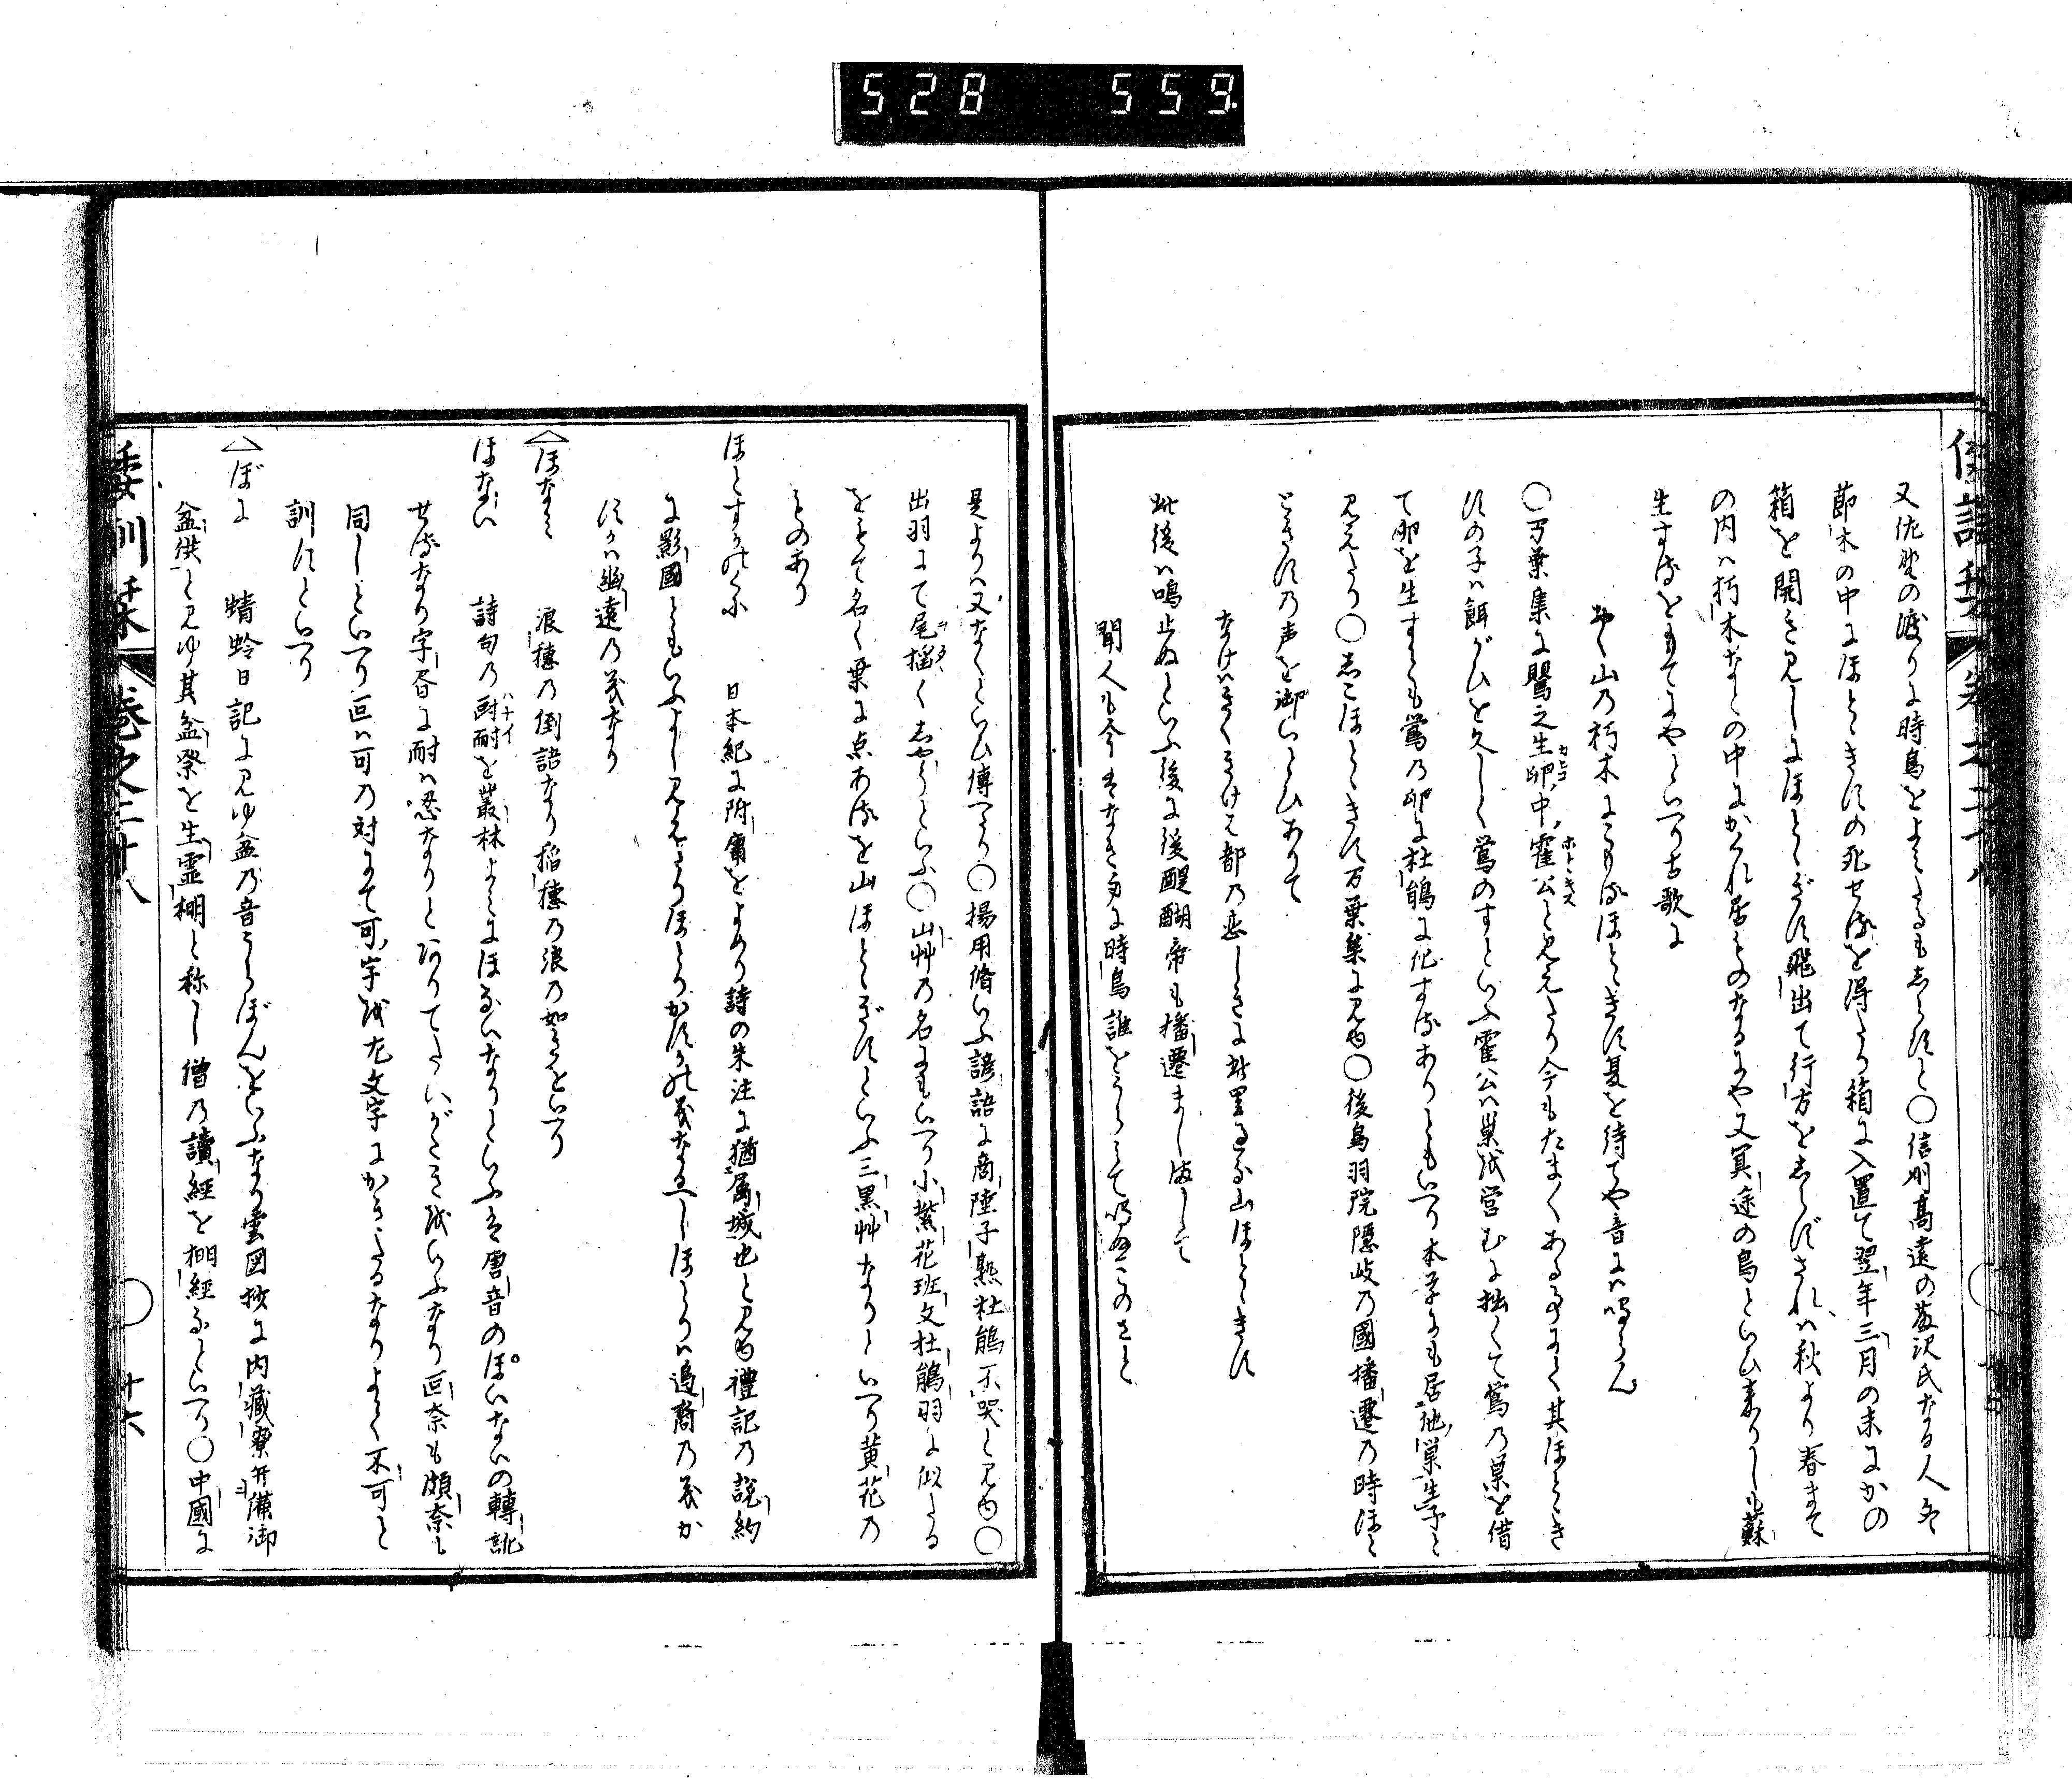 528 559
又佐野の渡りに時鳥をよみたるも志らすと〇信州高遠の藤沢氏なる人冬
節木の中にほとゝきすの死せるを得たり箱に入置て翌年三月の末にかの
箱を開き見しにほとゝぎす飛出て行方を志らずされハ秋より春まて
の内ハ朽木なとの中にかくれ居ものなるにや又冥途の鳥といひ来りしも蘇
生するをもてにやといへり古歌に
おく山の朽木にこもるほとゝきす夏を待てや音にハ鳴らん
〇万葉集に鶯之生卵中霍公と見えたり今もたま〳〵ある事にて其ほとゝき
すの子ハ餌がひを久しく鶯のすといふ霍公ハ巣を営むに拙くて鶯の巣を借
て卵を生すとも鶯の卵に杜鵑に化するありともいへり本草にも居他巣生子と
見えたり〇志こほとゝきす万葉集に見ゆ〇後鳥羽院隠岐の國播遷の時ほと
ときすの声を御いとひありて
なけハきくきけは都の恋しきに此里過よ山ほとゝきす
此後ハ鳴止ぬといふ後に後醍醐帝も播遷まし満して
聞人も今はなき身に時鳥誰をうらみて鳴ぬこのさと
倭訓栞 巻之二十八
是よりハ又なくといひ傳へり〇揚用脩いふ諺語に商陸子熟杜鵑不哭と見ゆ〇
出羽にて尾搖く志やうといふ〇山艸の名にもいへり小紫花班文杜鵑羽に似たる
をもて名く葉に点あるを山ほとゝぎすといふ三黒艸なりといへり黄花の
ものあり
ほとすかのくに 日本紀に附庸をよめり詩の朱注に猶属城也と見ゆ禮記の説約
に影國ともいふよし見えたりほとりかすかの義なるへしほとりハ邊裔の義か
すかハ幽遠の義なり
△ほなみ 浪穂の倒語なり稲穂の浪の如きをいへり
ほない 詩句の耐を叢林よみにほないなりといふは唐音のぽいないの轉訛
せるなり字書に耐ハ忍なりとありてたいがたきをいふなり叵奈も頗奈も
同しといへり叵ハ可の対にて可字を左文字にかきたるなりよて不可と
訓すといへり
△ぼに 蜻蛉日記に見ゆ盆の音うらぼんをいふなり雲図抄に内藏寮弁備御
盆供と見ゆ其盆祭を生霊棚と称し僧の讀經を棚經なといへり〇中國に
倭訓栞 巻之二十八 十六